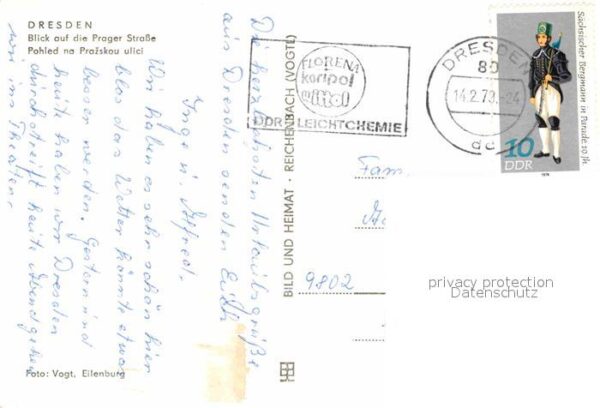 DRESDEN
Blick auf die Prager Straße
Pohled na Pražskou ulici
Die herzlichsten Urlaubsgrüße
aus Dresden senden Euch
Inge u. Alfred.
Wir haben es sehr schön hier
blos das Wetter könnte etwas
besser werden. Gestern und
heute haben wir Dresden
durchstreift heute Abend gehen
wir ins Theater.
Foto: Vogt, Eilenburg
BILD UND HEIMAT · REICHENBACH (VOGTL)
FLORENA
koripol
wittol
DDR-LEICHTCHEMIE
DRESDEN
80
14.2.79.-24
Sächsischer Bergmann in Parade 19. Jh.
10
DDR
1978
Fam.
9802
privacy protection
Datenschutz